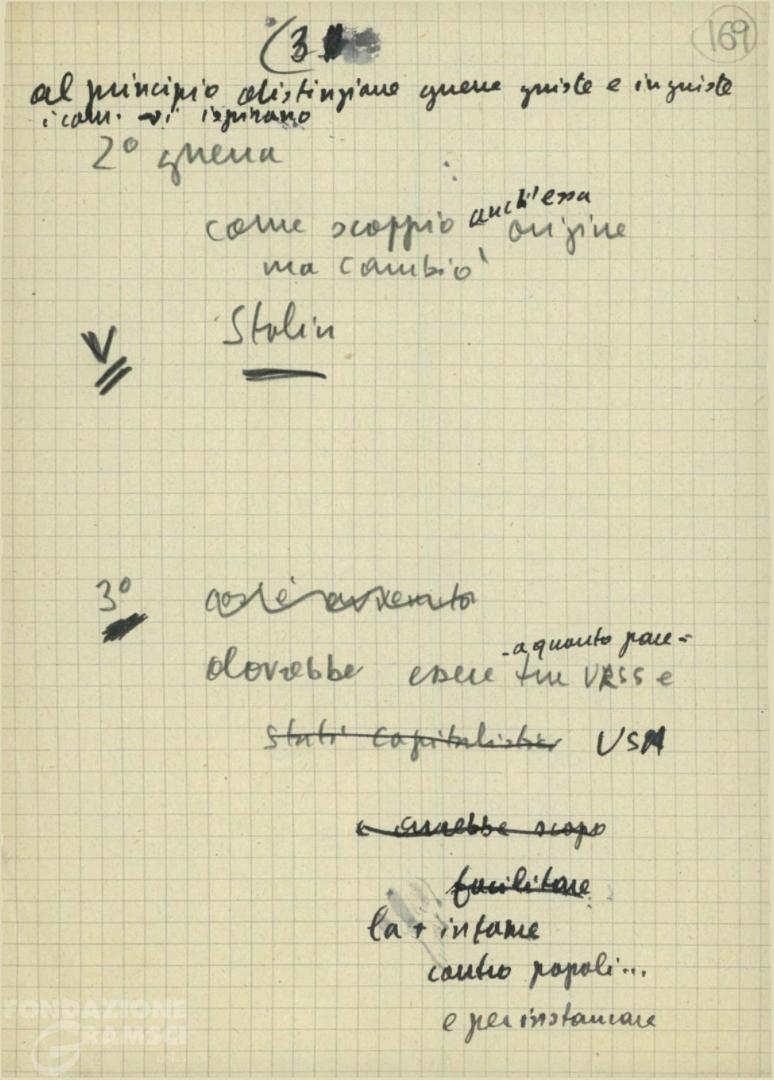 (3
169
al principio distinzione guerre giuste e ingiuste
i com. vi ispirano
2° guerra
anch'essa
come scoppiò origine
ma cambiò
Stalin
V
3° cos'è avvenuto
- a quanto pare -
dovrebbe essere tra URSS e
stati capitalistici USA
e avrebbe scopo
facilitare
la + infame
contro popoli...
e per instaurare
FONDAZIONE
GRAMSCI